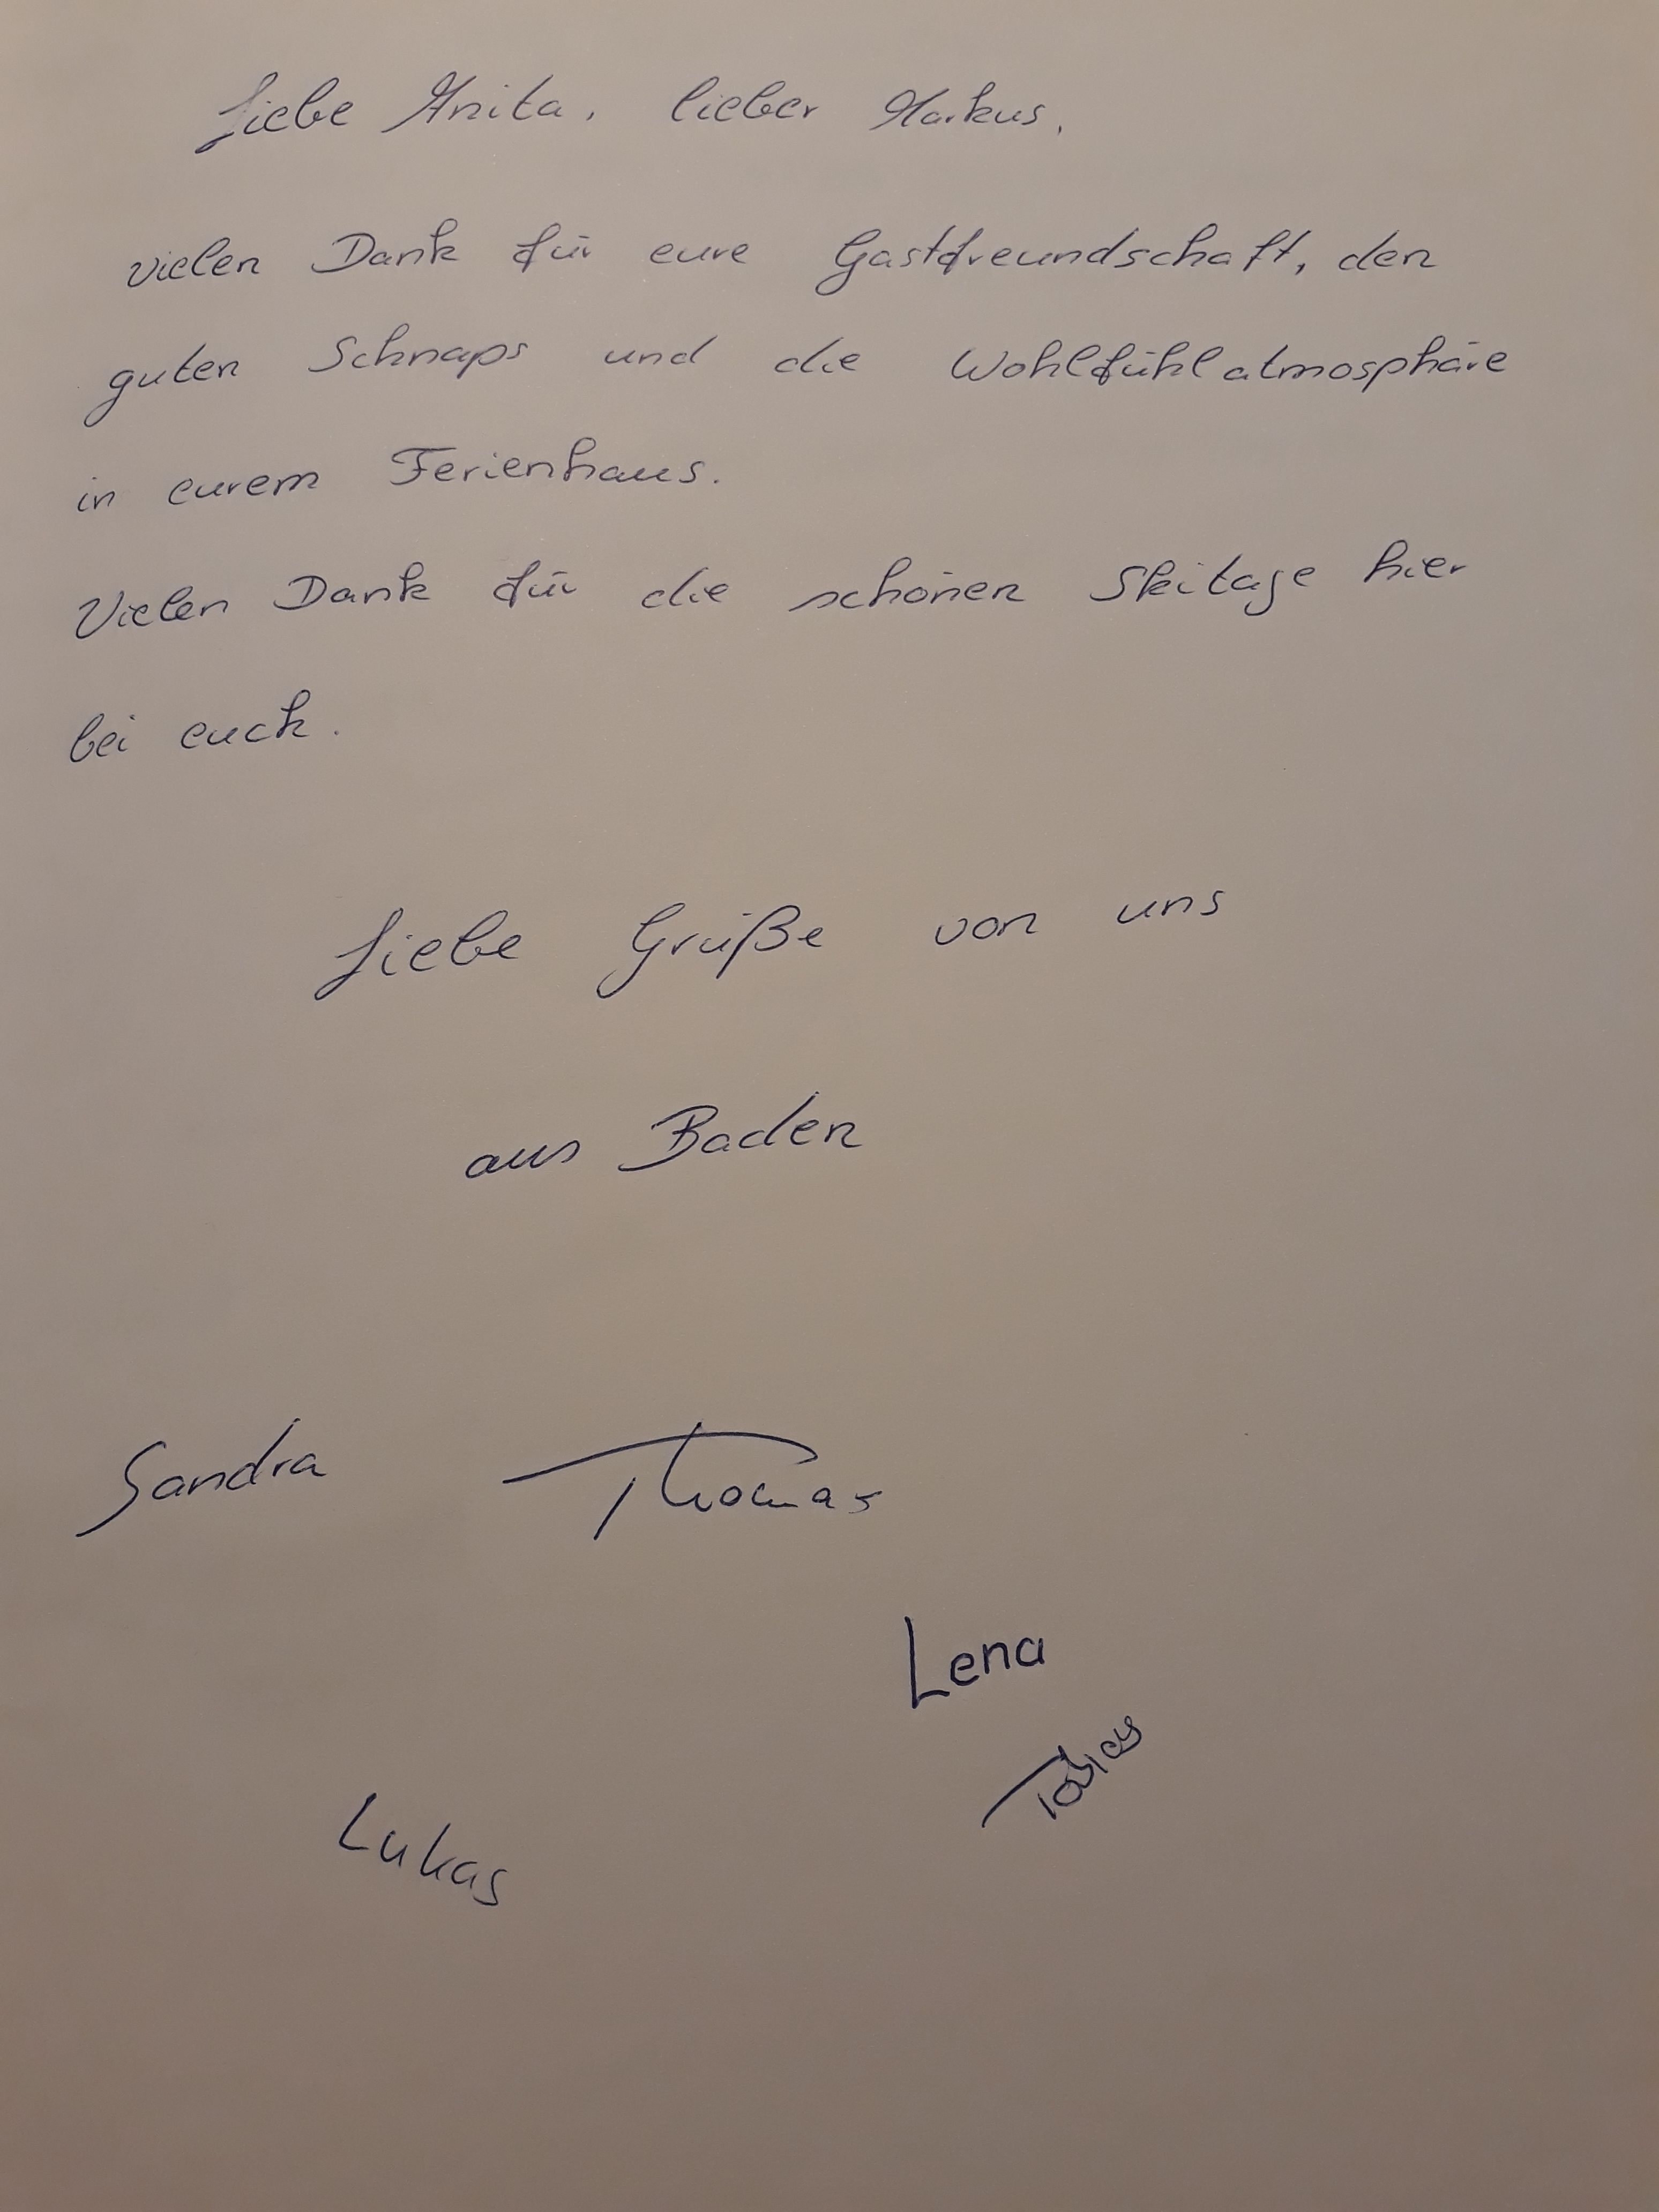 Liebe Anita, lieber Markus,
vielen Dank für eure Gastfreundschaft, den
guten Schnaps und die Wohlfühlatmosphäre
in eurem Ferienhaus.
Vielen Dank für die schönen Skitage hier
bei euch.
Liebe Grüße von uns
aus Baden
Sandra Thomas
Lena
Tobias
Lukas